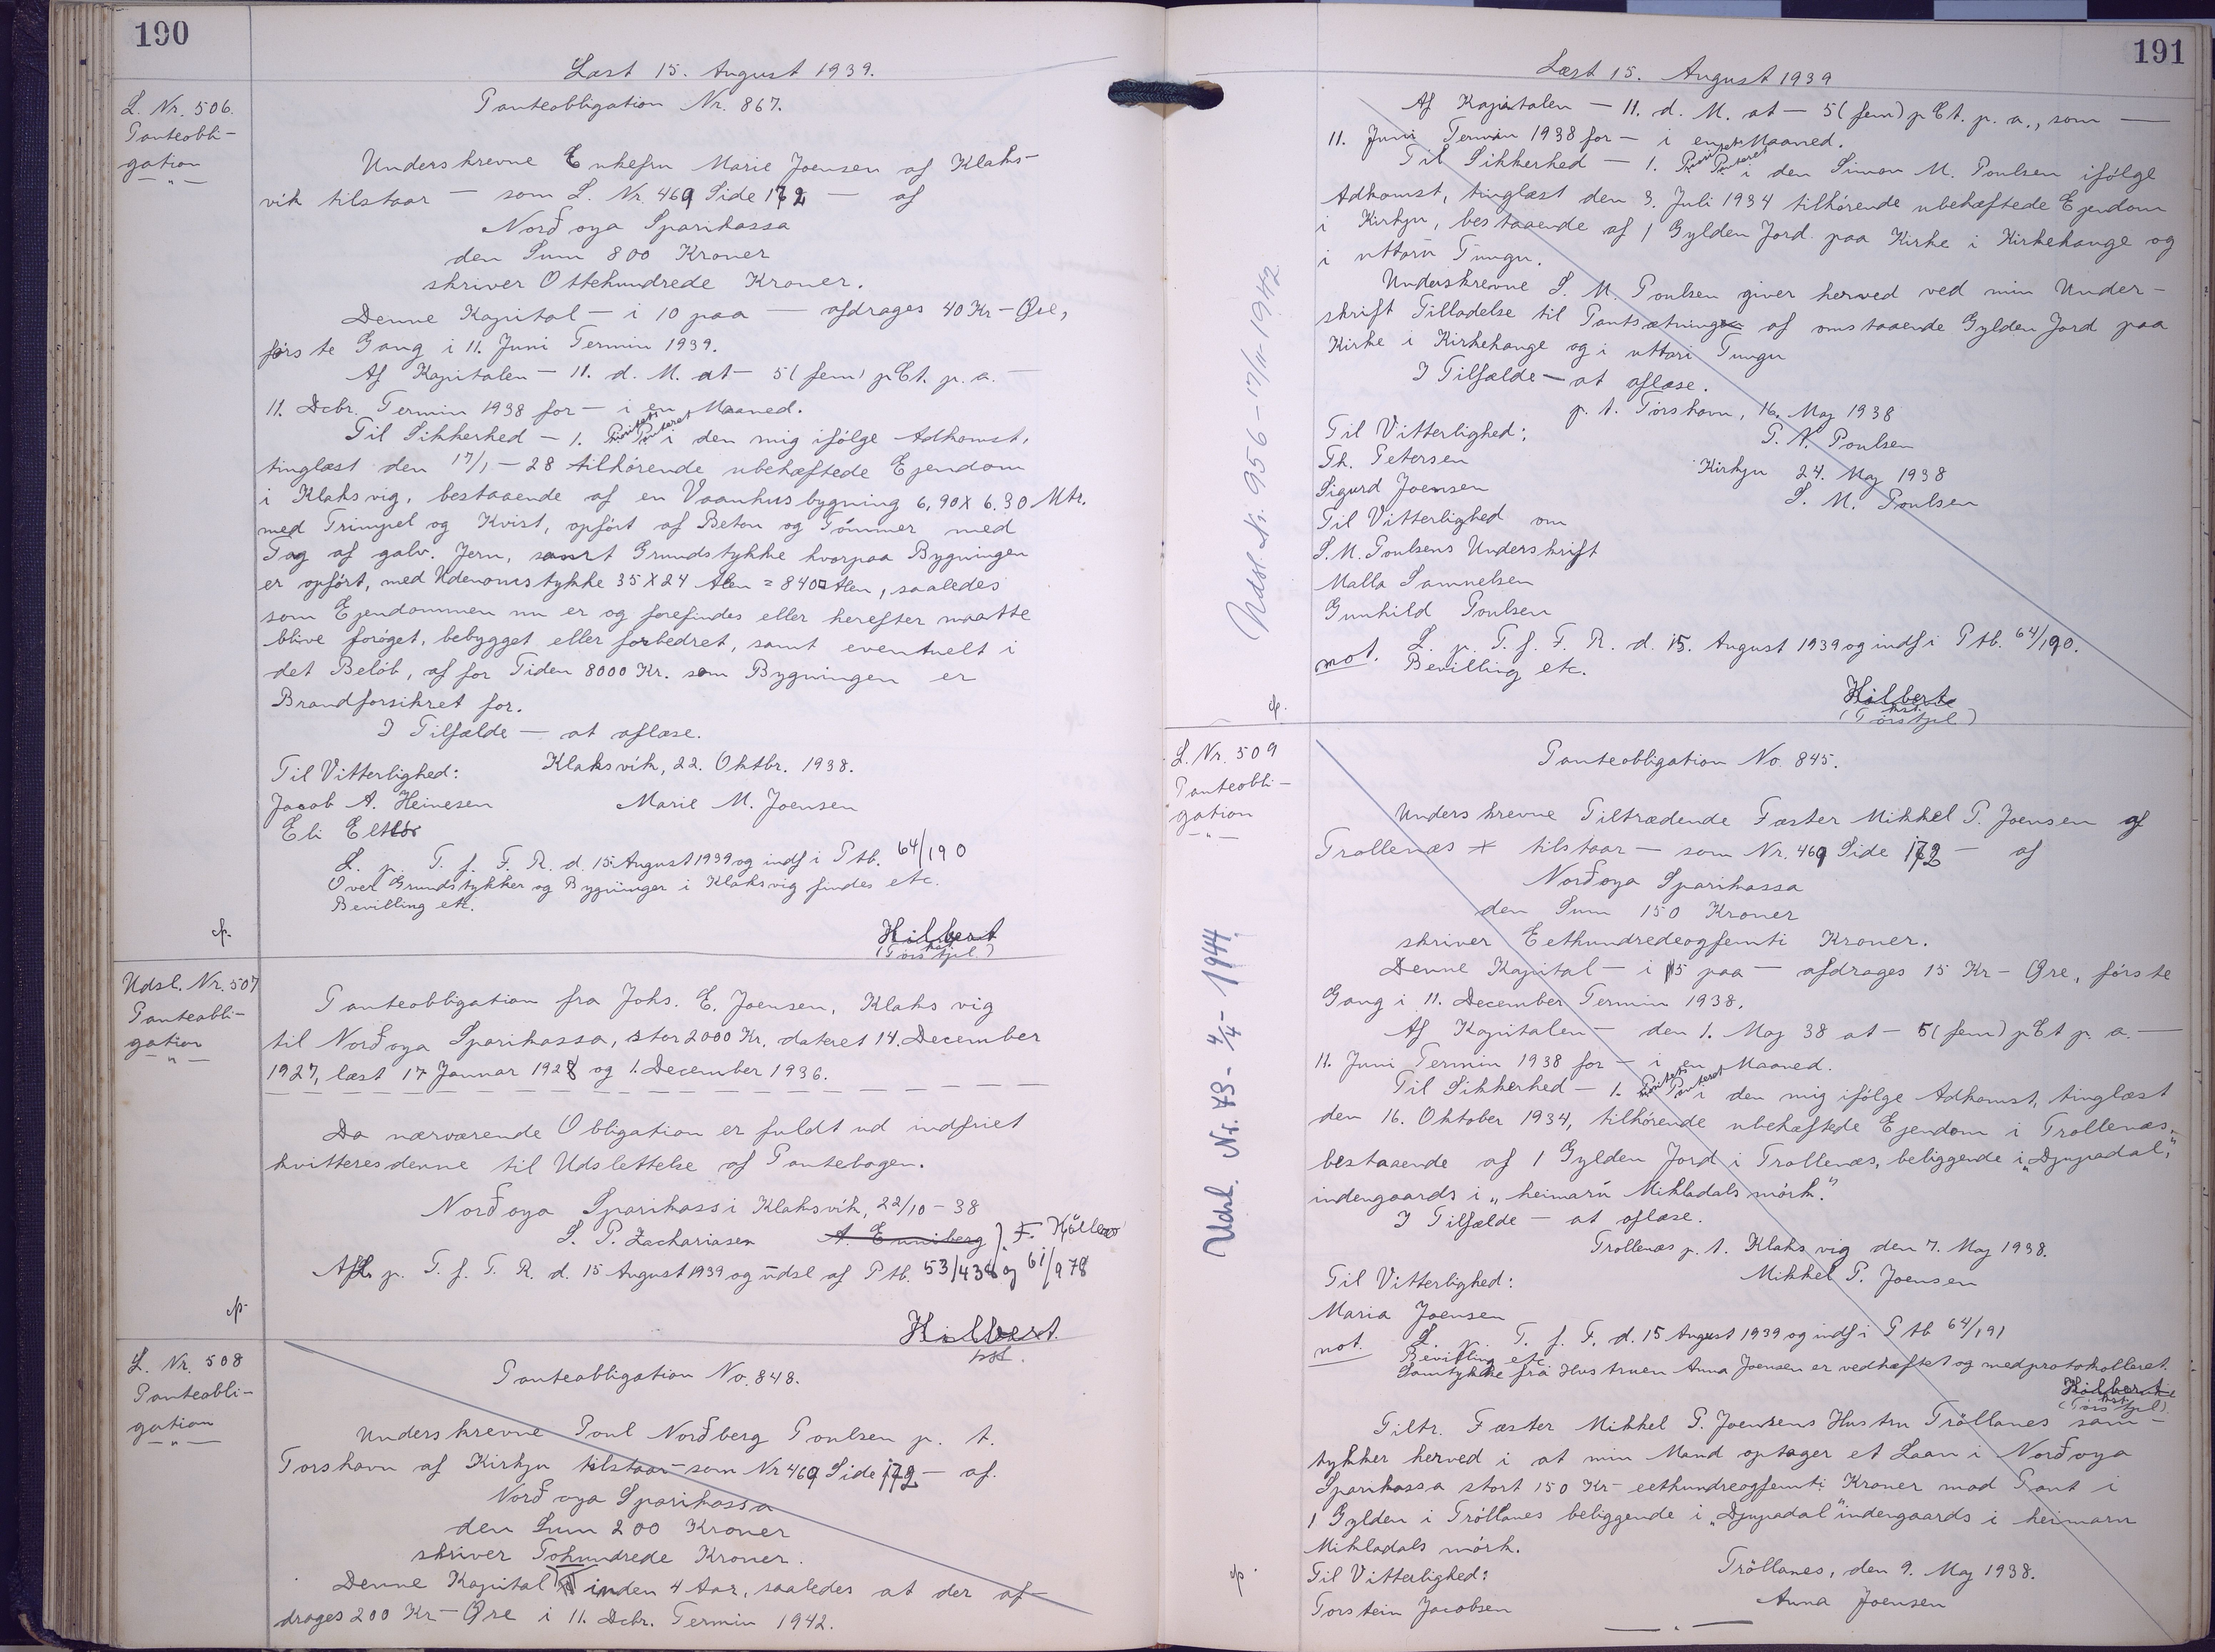 190
Læst 15. August 1939.
L. Nr. 506.
Panteobli-
gation
Panteobligation Nr. 867.
Underskrevne Enkefru Marie Joensen af Klaks-
vik tilstaar — som L. Nr. 469 Side 172 — af
Norðoya Sparikassa
den Sum 800 Kroner
skriver Ottehundrede Kroner.
Denne Kapital — i 10 paa — afdrages 40 Kr — Øre,
første Gang i 11. Juni Termin 1939.
Af Kapitalen — 11. d. M. at — 5 (fem) pCt. p. a. —
11. Dcbr. Termin 1938 for — i en Maaned.
Til Sikkerhed — 1. Prioritets Panteret i den mig ifølge Adkomst,
tinglæst den 17/1 — 28 tilhørende ubehæftede Ejendom
i Klaksvig, bestaaende af en Vaanhusbygning 6,90 X 6.30 Mtr.
med Trimpel og Kvist, opført af Beton og Tømmer med
Tag af galv. Jern, samt Grundstykke hvorpaa Bygningen
er opført, med Udenomstykke 35 X 24 Alen = 840 □ Alen, saaledes
som Ejendommen nu er og forefindes eller herefter maatte
blive forøget, bebygget eller forbedret, samt eventuelt i
det Beløb, af for Tiden 8000 Kr. som Bygningen er
Brandforsikret for.
I Tilfælde — at aflæse.
Til Vitterlighed: Klaksvik, 22. Oktbr. 1938.
Jacob A. Heinesen Marie M. Joensen
Eli
L. p. T. f. F. R. d. 15 August 1939 og indf i Ptb. 64/190
Over Grundstykker og Bygninger i Klaksvig findes etc.
Bevilling etc.
Hilbert
cst.
Udsl. Nr. 507
Panteobli-
gation
Panteobligation fra Johs. E. Joensen, Klaksvig
til Norðoya Sparikassa, stor 2000 Kr. dateret 14. December
1927, læst 17 Januar 1928 og 1. December 1936.
Da nærværende Obligation er fuldt ud indfriet
kvitteres denne til Udslettelse af Pantebogen.
Norðoya Sparikassi Klaksvik, 22/10 — 38
S. P. Zachariasen A. Enniberg). F.
Afl. p. T. f. F. R. d. 15 August 1939 og udsl af Ptb. 53/438 og 61/978
Hilbert.
cst.
L. Nr. 508
Panteobli-
gation
Panteobligation No. 848.
Underskrevne Poul Norðberg Poulsen p. t.
Torshavn af Kirkju tilstaar — som Nr 469 Side 172 — af.
Norðoya Sparikassa
den Sum 200 Kroner
skriver Tohundrede Kroner.
Denne Kapital inden 4 Aar, saaledes at der af-
drages 200 Kr — Øre i 11. Dcbr. Termin 1942.
191
Læst 15. August 1939
Af Kapitalen — 11. d. M. at — 5 (fem) pCt. p. a., som —
11. Juni Termin 1938 for — i en Maaned.
Til Sikkerhed — 1. Prioritets Panteret i den Simon M. Poulsen ifølge
Adkomst, tinglæst den 3. Juli 1934 tilhørende ubehæftede Ejendom
i Kirkju, bestaaende af 1 Gylden Jord paa Kirke i Kirkehauge og
i uttaru Tungu.
Underskrevne S. M. Poulsen giver herved ved min Under-
skrift Tilladelse til Pantsætning af omstaaende Gylden Jord paa
Kirke i Kirkehauge og i uttari Tungu
I Tilfælde — at aflæse.
p. t. Torshavn, 16. Maj 1938
Til Vitterlighed: P. N. Poulsen
Th. Petersen Kirkju 24. Maj 1938
Sigurd Joensen S. M. Poulsen
Til Vitterlighed om
S. M. Poulsens Underskrift
Malla Samuelsen
Gunhild Poulsen
not. L. p. T. f. F. R. d. 15. August 1939 og indf i Ptb. 64/190.
Bevilling etc.
Hilbert
cst.
Udsl Nr. 956 — 17/11 - 1942
L. Nr. 509
Panteobli-
gation
Panteobligation No. 845.
Underskrevne Tiltrædende Fæster Mikkel P. Joensen af
Trollenæs tilstaar — som Nr. 469 Side 172 — af
Norðoya Sparikassa
den Sum 150 Kroner
skriver Eethundredeogfemti Kroner.
Denne Kapital — i 15 paa — afdrages 15 Kr — Øre, første
Gang i 11. December Termin 1938.
Af Kapitalen — den 1. Maj 38 at — 5 (fem) pCt p. a. —
11. Juni Termin 1938 for — i en Maaned.
Til Sikkerhed — 1. Prioritets Panteret i den mig ifølge Adkomst, tinglæst
den 16. Oktober 1934, tilhørende ubehæftede Ejendom i Trollenæs,
bestaaende af 1 Gylden Jord i Trollenæs, beliggende i „Djupadal",
indengaards i „heimaru Mikladals mørk."
I Tilfælde — at aflæse.
Trollenæs p. t. Klaksvig den 7. Maj 1938.
Til Vitterlighed: Mikkel P. Joensen
Maria Joensen
not. L. p. T. f. F. d. 15 August 1939 og indf i Ptb 64/191
Bevilling etc
Samtykke fra Hustruen Anna Joensen er vedhæftet og medprotokolleret.
Hilbert
cst.
Udsl. Nr. 73 - 4/4 - 1944.
Tiltr. Fæster Mikkel P. Joensens Hustru Trøllanes sam-
tykker herved i at min Mand optager et Laan i Norðoya
Sparikassa stort 150 Kr — eethundreogfemti Kroner mod Pant i
1 Gylden i Trøllanes beliggende i „Djupadal" indengaards i heimaru
Mikladals mørk.
Til Vitterlighed: Trøllanes, den 9. Maj 1938.
Torstein Jacobsen Anna Joensen